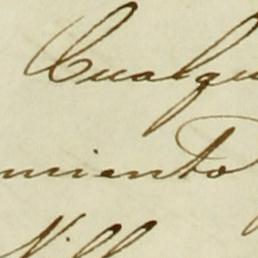 Cualqu
miento